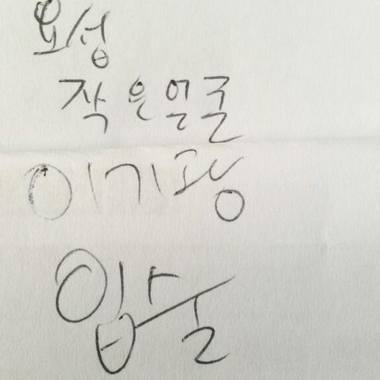 요성
작은얼굴
이기광
입술